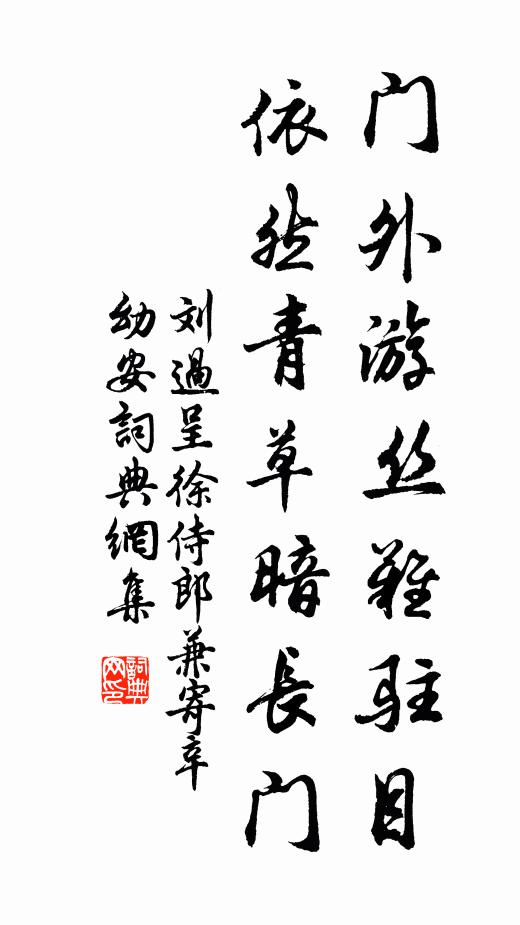 门外游丝难駐目
依然青草暗長门
刘過呈徐侍郎兼寄辛
幼安詞典網集
詞典
网印